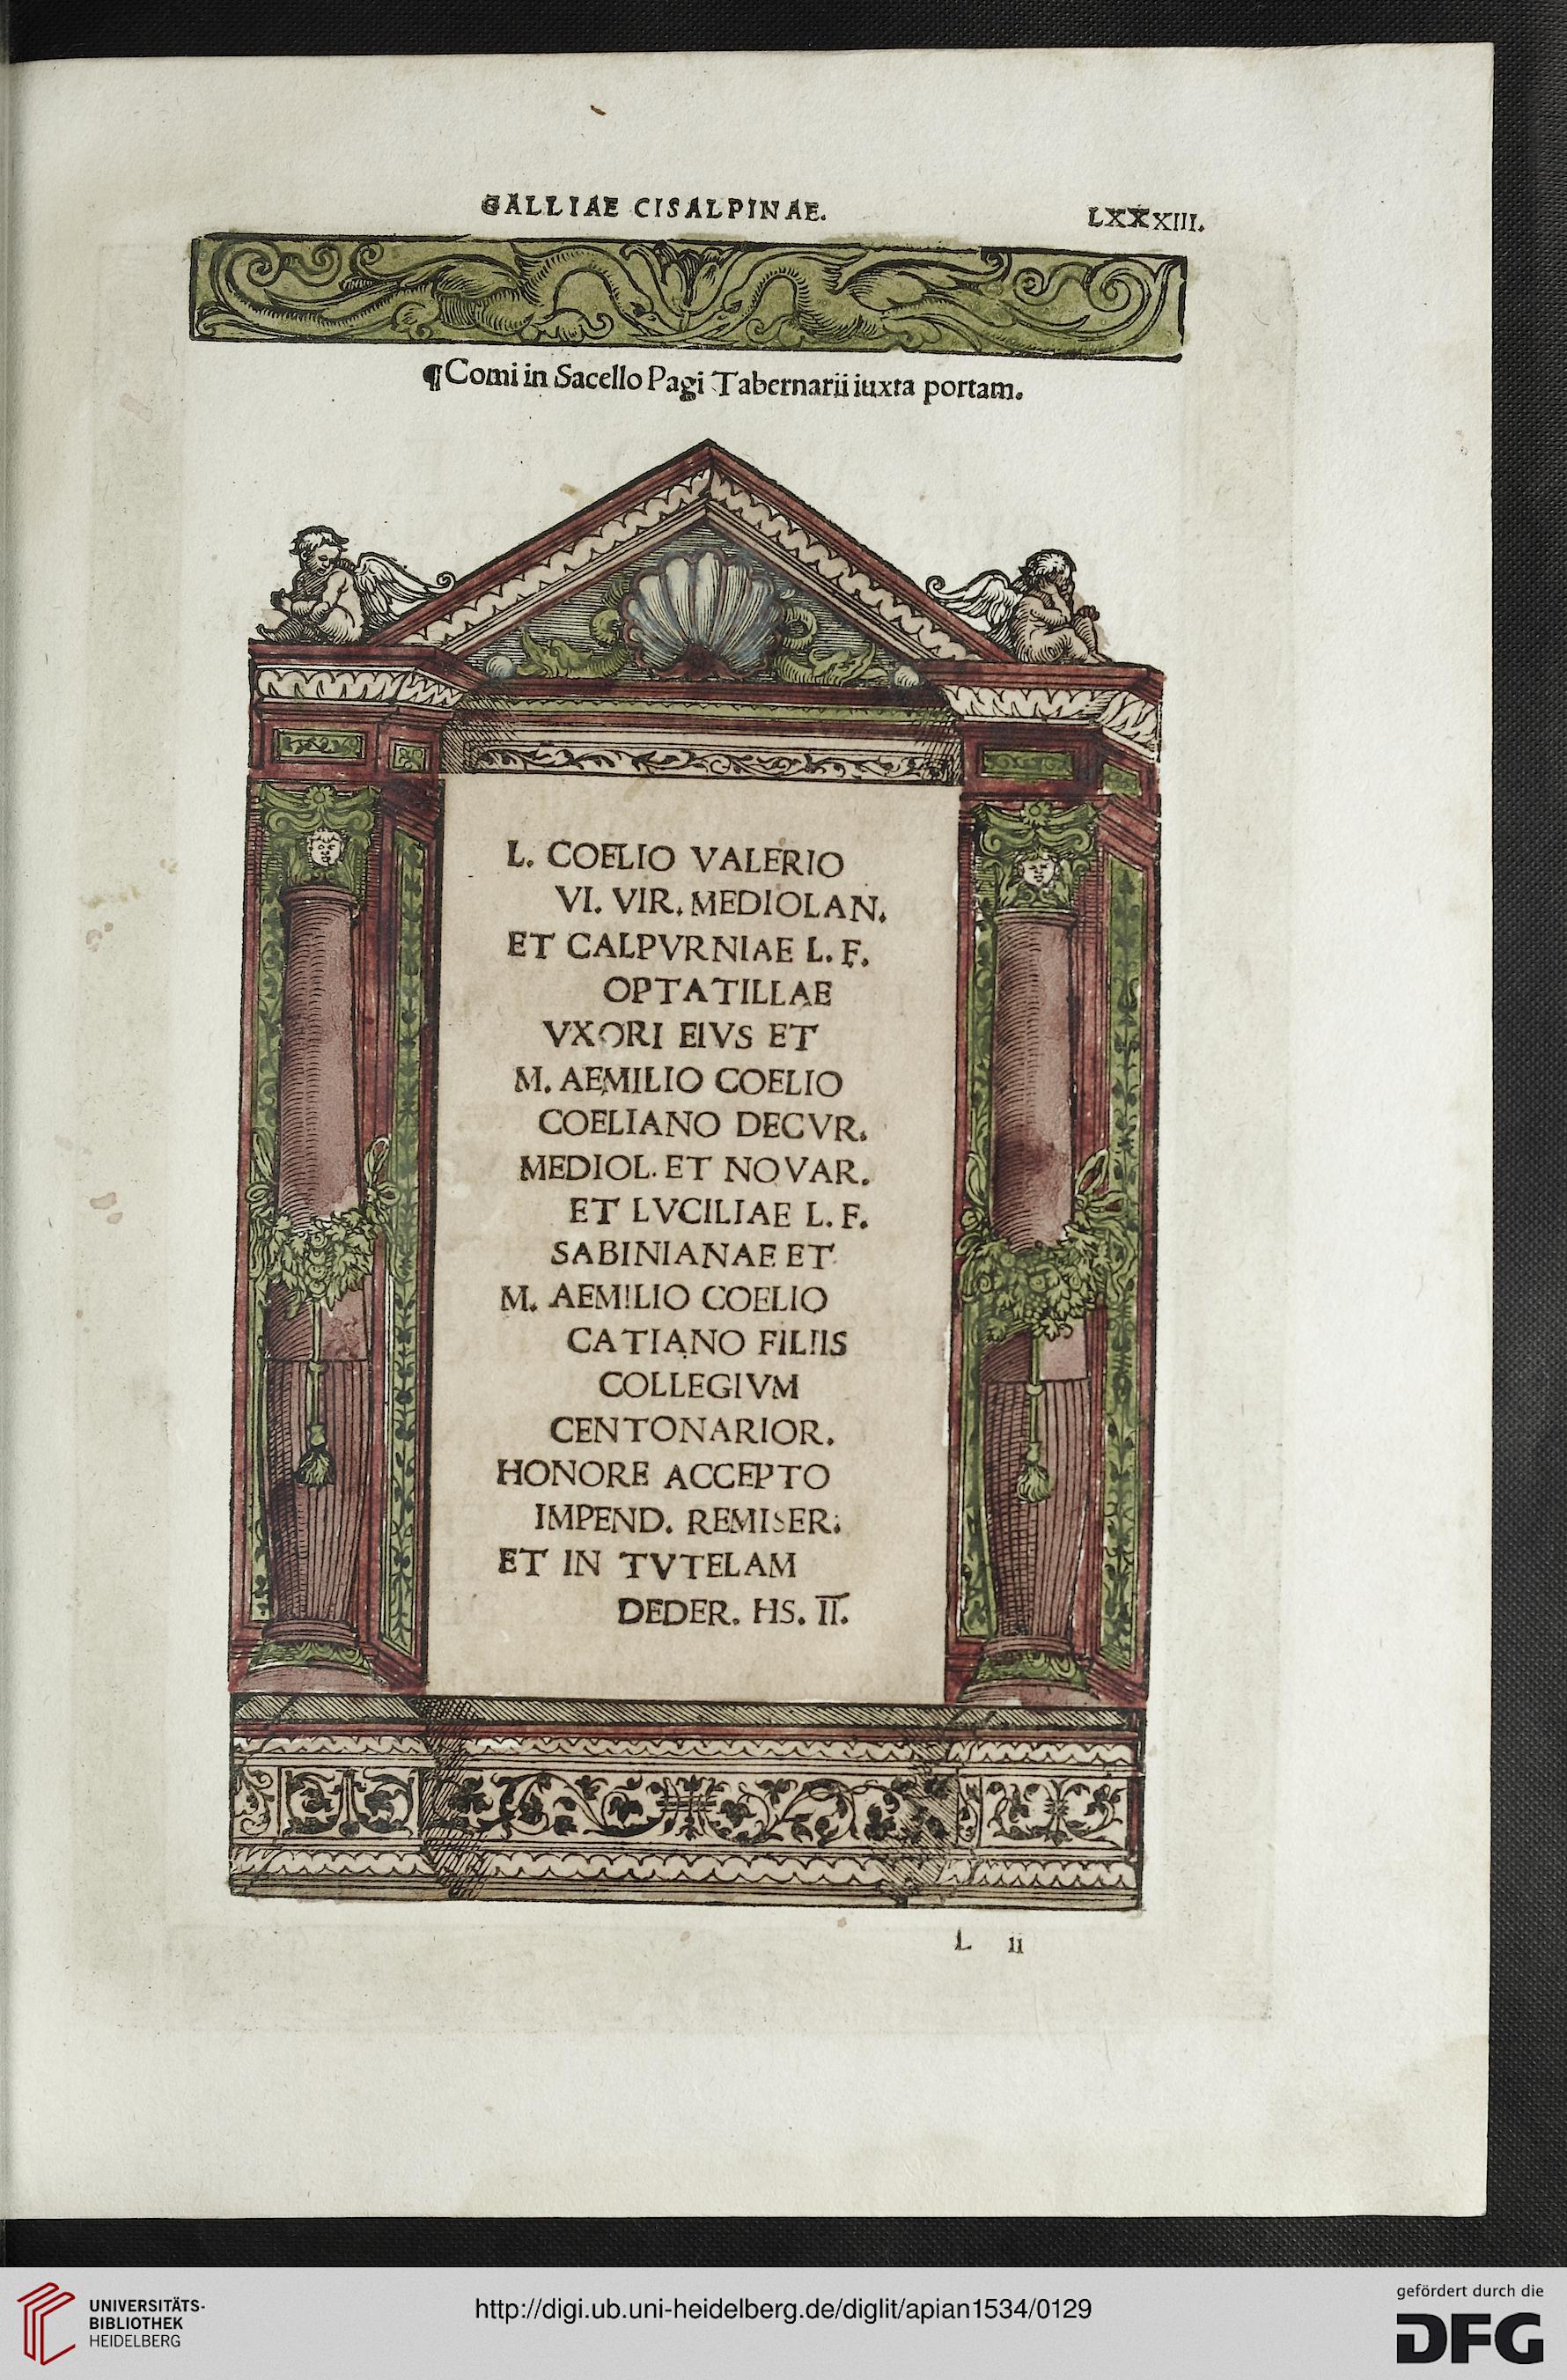 GALLIAE CISALPINAE.
LXXXIII.
¶Comi in Sacello Pagi Tabernarii iuxta portam.
L. COELIO VALERIO
VI. VIR. MEDIOLAN.
ET CALPVRNIAE L. F.
OPTATILLAE
VXORI EIVS ET
M. AEMILIO COELIO
COELIANO DECVR.
MEDIOL. ET NOVAR.
ET LVCILIAE L. F.
SABINIANAE ET
M. AEMILIO COELIO
CATIANO FILIIS
COLLEGIVM
CENTONARIOR.
HONORE ACCEPTO
IMPEND. REMISER.
ET IN TVTELAM
DEDER. HS. I̅I̅.
L ii
UNIVERSITÄTS-
BIBLIOTHEK
HEIDELBERG
http://digi.ub.uni-heidelberg.de/diglit/apian1534/0129
gefördert durch die
DFG